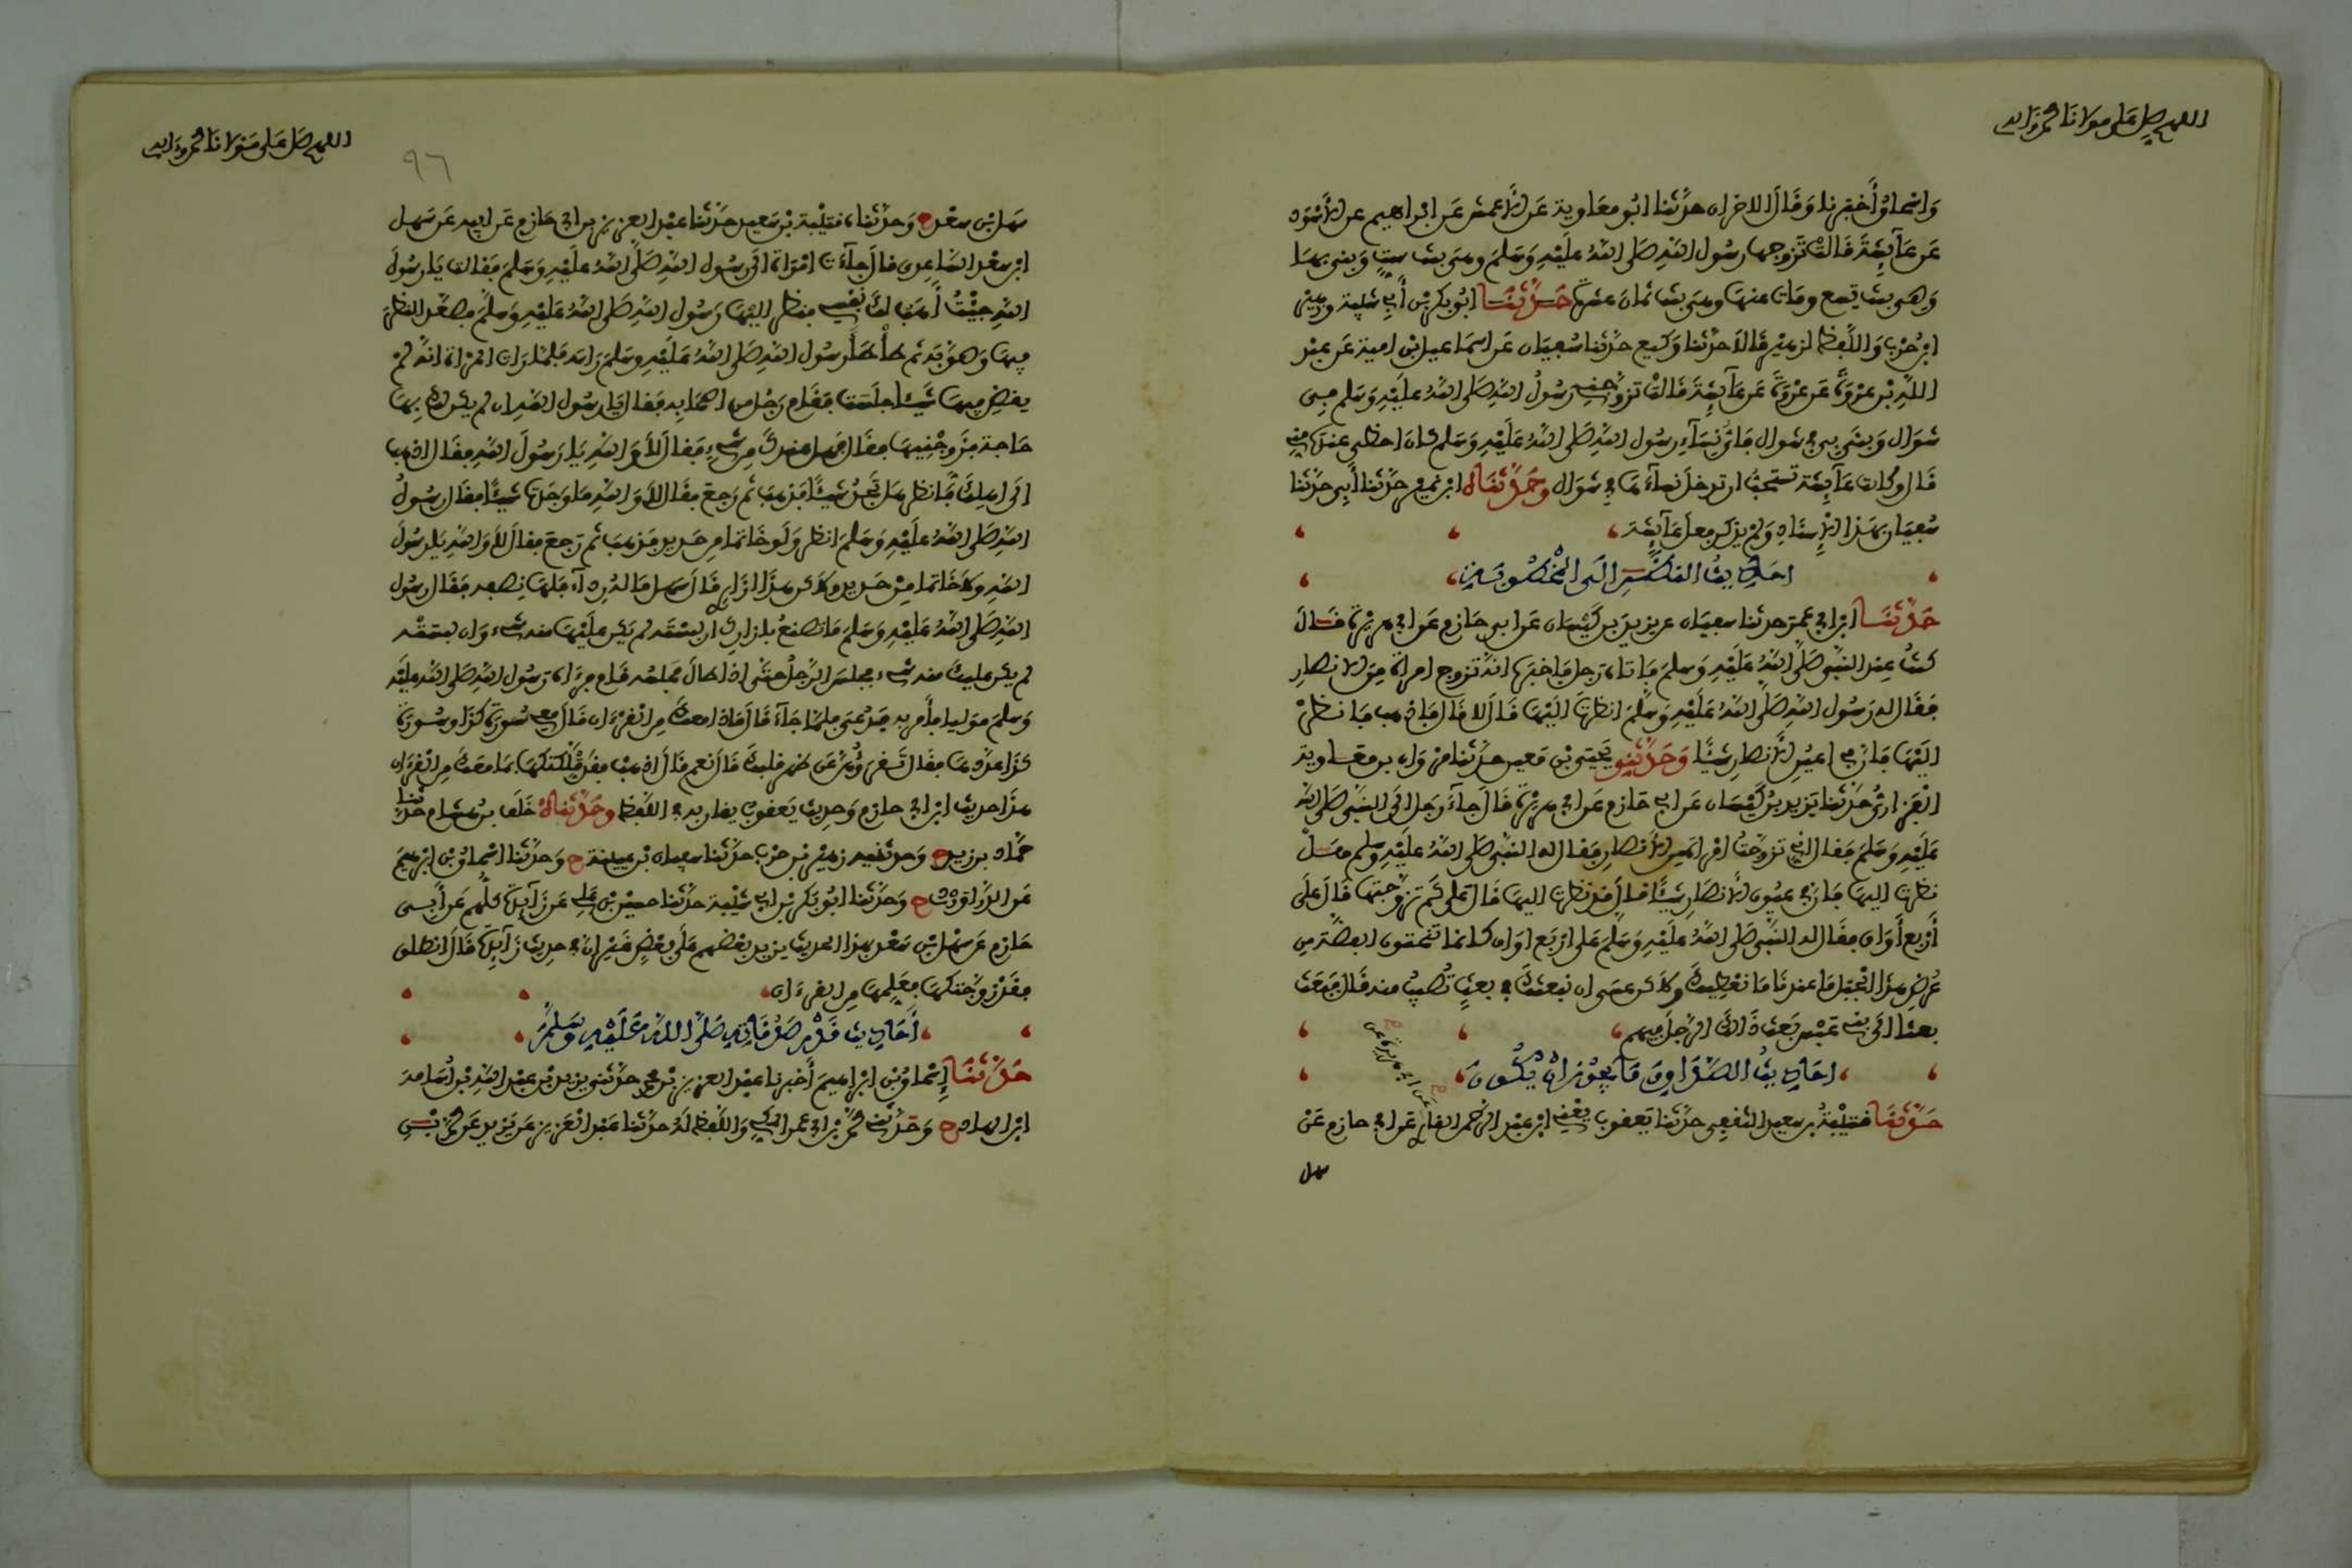 اللهم صل على مولانا محمد وآله
واسحاق أخبرنا وقال الاخران حدثنا ابو معاوية عن الأعمش عن ابراهيم عن الأسود
عن عآيشة قالت تزوجها رسول الله صلى الله عليه وسلم وهي بنت ست وبنى بها
وهي بنت تسع ومات عنها وهي بنت ثمان عشرة حدثنا ابو بكر بن أبي شيبة وزهير
ابن حرب واللفظ لزهير قالا حدثنا وكيع حدثنا سفيان عن اسماعيل بن امية عن عبد
الله بن عروة عن عروة عن عآيشة قالت تزوجني رسول الله صلى الله عليه وسلم في
شوال وبنى بي في شوال فأي نسآء رسول الله صلى الله عليه وسلم كان احظى عنده مني
قال وكانت عآيشة تستحب ان تدخل نسآءها في شوال وحدثناه ابن نمير حدثنا أبي حدثنا
سفيان بهذا الإسناد ولم يذكر فعل عآيشة
حدثنا ابن ابي عمر حدثنا سفيان عن يزيد بن كيسان عن ابي حازم عن ابي هريرة قال
كنت عند النبي صلى الله عليه وسلم فأتاه رجل فأخبره انه تزوج امرأة من الانصار
فقال له رسول الله صلى الله عليه وسلم انظرت اليها قال لا قال فاذهب فانظر
اليها فان في اعين الأنصار شيئا وحدثني يحيى بن معين حدثنا مروان بن معاوية
الفزاري حدثنا يزيد بن كيسان عن ابي حازم عن ابي هريرة قال جآء رجل الى النبي صلى الله
عليه وسلم فقال اني تزوجت امرأة من الأنصار فقال له النبي صلى الله عليه وسلم هل
نظرت اليها فان في عيون الأنصار شيئا قال قد نظرت اليها قال على كم تزوجتها قال على
أربع أواق فقال له النبي صلى الله عليه وسلم على اربع اواق كانما تنحتون الفضة من
عرض هذا الجبل ما عندنا ما نعطيك ولاكن عسى ان نبعثك في بعث تصيب منه قال فبعث
بعثا الى بني عبس بعث ذالك الرجل فيهم
احاديث الصداق وما يجوز ان يكون
حدثنا قتيبة بن سعيد الثقفي حدثنا يعقوب يعني ابن عبد الرحمن القاري عن ابي حازم عن
سهل
اللهم صل على مولانا محمد وآله
٩٦
سهل بن سعد ح وحدثنا قتيبة بن سعيد حدثنا عبد العزيز بن ابي حازم عن ابيه عن سهل
ابن سعد الساعدي قال جآءت امرأة الى رسول الله صلى الله عليه وسلم فقالت يا رسول
الله جيت أهب لك نفسي فنظر اليها رسول الله صلى الله عليه وسلم فصعد النظر
فيها وصوبه ثم طأطأ رسول الله صلى الله عليه وسلم رأسه فلما رأت المرأة انه لم
يقض فيها شيئا جلست فقام رجل من اصحابه فقال يا رسول الله ان لم يكن لك بها
حاجة فزوجنيها فقال فهل عندك من شيء فقال لا والله يا رسول الله فقال اذهب
الى اهلك فانظر هل تجد شيئا فذهب ثم رجع فقال لا والله ما وجدت شيئا فقال رسول
الله صلى الله عليه وسلم انظر ولو خاتما من حديد فذهب ثم رجع فقال لا والله يا رسول
الله ولا خاتما من حديد ولاكن هذا ازاري قال سهل ما له ردآء فلها نصفه فقال رسول
الله صلى الله عليه وسلم ما تصنع بإزارك ان لبسته لم يكن عليها منه شيء وان لبسته
لم يكن عليك منه شيء فجلس الرجل حتى اذا طال مجلسه قام فرءاه رسول الله صلى الله عليه
وسلم موليا فأمر به فدعي فلما جآء قال ماذا معك من القرءان قال معي سورة كذا وسورة
كذا عددها فقال تقرؤهن عن ظهر قلبك قال نعم قال اذهب فقد ملكتكها بما معك من القرءان
هذا حديث ابن ابي حازم وحديث يعقوب يقاربه في اللفظ وحدثناه خلف بن هشام حدثنا
حماد بن زيد ح وحدثنيه زهير بن حرب حدثنا سفيان بن عيينة ح وحدثنا اسحاق بن ابرهيم
عن الدراوردي ح وحدثنا ابو بكر بن ابي شيبة حدثنا حسين بن علي عن زآيدة كلهم عن أبي
حازم عن سهل بن سعد بهذا الحديث يزيد بعضهم على بعض غير ان في حديث زآيدة قال انطلق
فقد زوجتكها فعلمها من القرءان
أحاديث قدر صدقاته صلى الله عليه وسلم
حدثنا إسحاق بن ابراهيم أخبرنا عبد العزيز بن محمد حدثني يزيد بن عبد الله بن أسامة
ابن الهاد ح وحدثني محمد بن ابي عمر المكي واللفظ له حدثنا عبد العزيز عن يزيد عن محمد بن